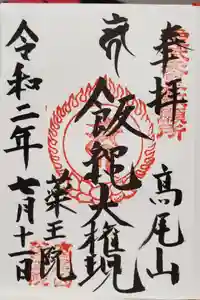 奉拝
高尾山
飯縄大権現
薬王院
令和二年
七月十一日